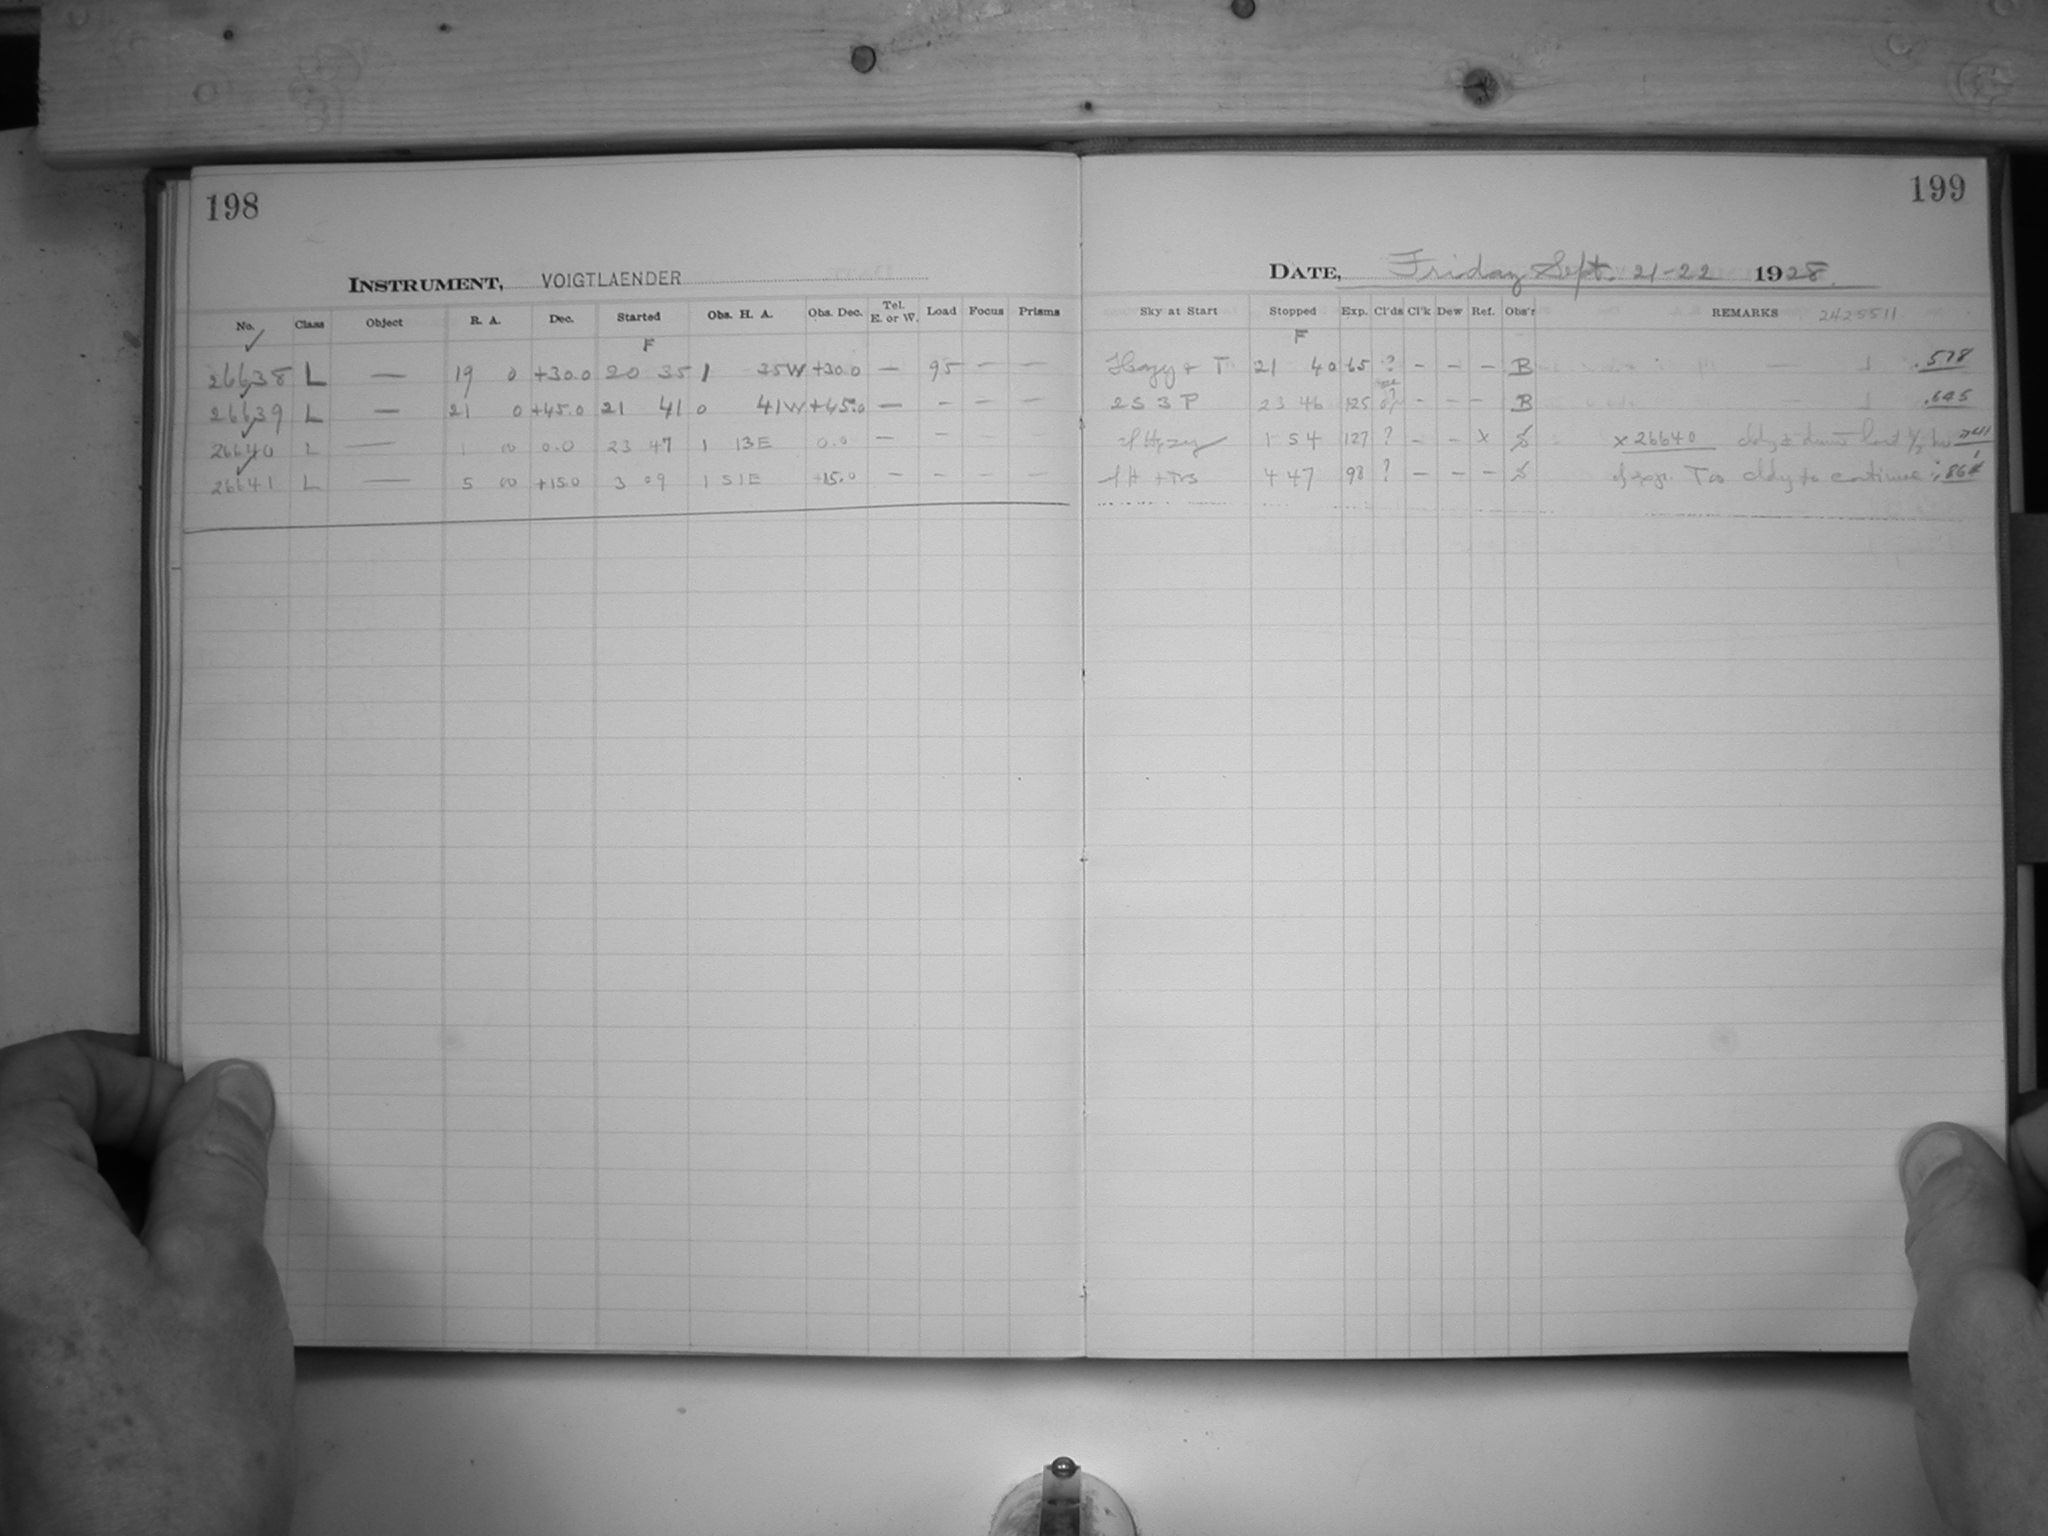 198
199
INSTRUMENT, VOIGTLAENDER
DATE, Friday Sept. 21-22 1928.
No. Class Object R. A. Dec. Started Obs. H. A. Obs. Dec. Tel. E. or W. Load Focus Prisms
Sky at Start Stopped Exp. Cl'ds Cl'k Dew Ref. Obs'r REMARKS 2425511
F F
26638 L — 19 0 +30.0 20 35 1 35W +30.0 — 95 — — Hazy + T 21 40 65 ? — — — B 1 .578
26639 L — 21 0 +45.0 21 41 0 41W +45.0 — — — — 2 S 3 P 23 46 125 — — — B 1 .645
26640 L — 1 00 0.0 23 47 1 13E 0.0 — — Hazy 1 54 127 ? — — x x 26640 cldy last 1/2 hr
26641 L — 5 00 +15.0 3 09 1 51E +15.0 — — — — H 4 47 98 ? — — — of expo. Too cldy to continue